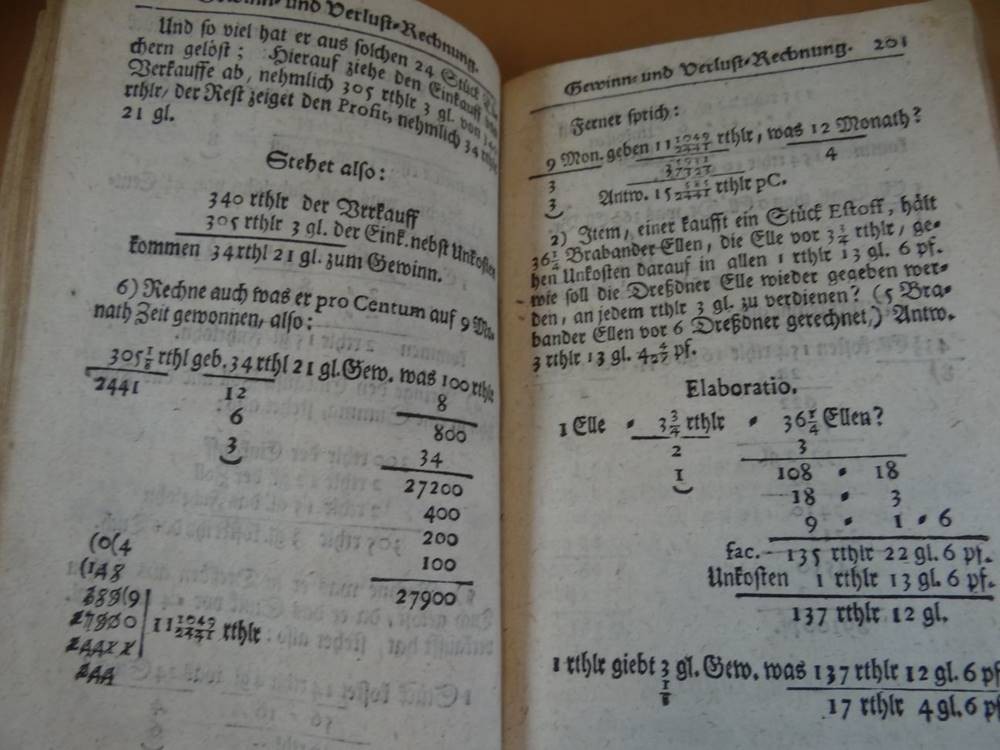 Gewinn- und Verlust-Rechnung.
Und so viel hat er aus solchen 24 Stück
chern gelöst; Hierauf ziehe den Einkauff
Verkauffe ab, nehmlich 305 rthlr 3 gl. von
rthlr/ der Rest zeiget den Profit, nehmlich 34 rthlr
21 gl.
Stehet also:
340 rthlr der Verkauff
305 rthlr 3 gl. der Eink. nebst Unkosten
kommen 34 rthl 21 gl. zum Gewinn.
6) Rechne auch was er pro Centum auf 9 Mo-
nath Zeit gewonnen, also:
305 1/8 rthl geb. 34 rthl 21 gl. Gew. was 100 rthlr
2441 12 8
6 800
3 34
27200
400
200
100
27900
(0(4
(148
389(9
27900 | 11 1049/2441 rthlr
24411
244
Gewinn- und Verlust-Rechnung. 201
Ferner sprich:
9 Mon. geben 11 1049/2441 rthlr, was 12 Monath?
3 4
3 Antw. 15 585/2441 rthlr pC.
2) Item, einer kaufft ein Stück Estoff, hält
36 1/4 Brabander Ellen, die Elle vor 3 3/4 rthlr, ge-
hen Unkosten darauf in allen 1 rthlr 13 gl. 6 pf.
wie soll die Dreßdner Elle wieder gegeben wer-
den, an jedem rthlr 3 gl. zu verdienen? (5 Bra-
bander Ellen vor 6 Dreßdner gerechnet,) Antw.
3 rthlr 13 gl. 4 pf.
Elaboratio.
1 Elle • 3 3/4 rthlr • 36 1/4 Ellen?
2 3
1 108 • 18
18 • 3
9 • 1 • 6
fac. - 135 rthlr 22 gl. 6 pf.
Unkosten 1 rthlr 13 gl. 6 pf.
137 rthlr 12 gl.
1 rthlr giebt 3 gl. Gew. was 137 rthlr 12 gl. 6 pf
1/8 17 rthlr 4 gl. 6 pf